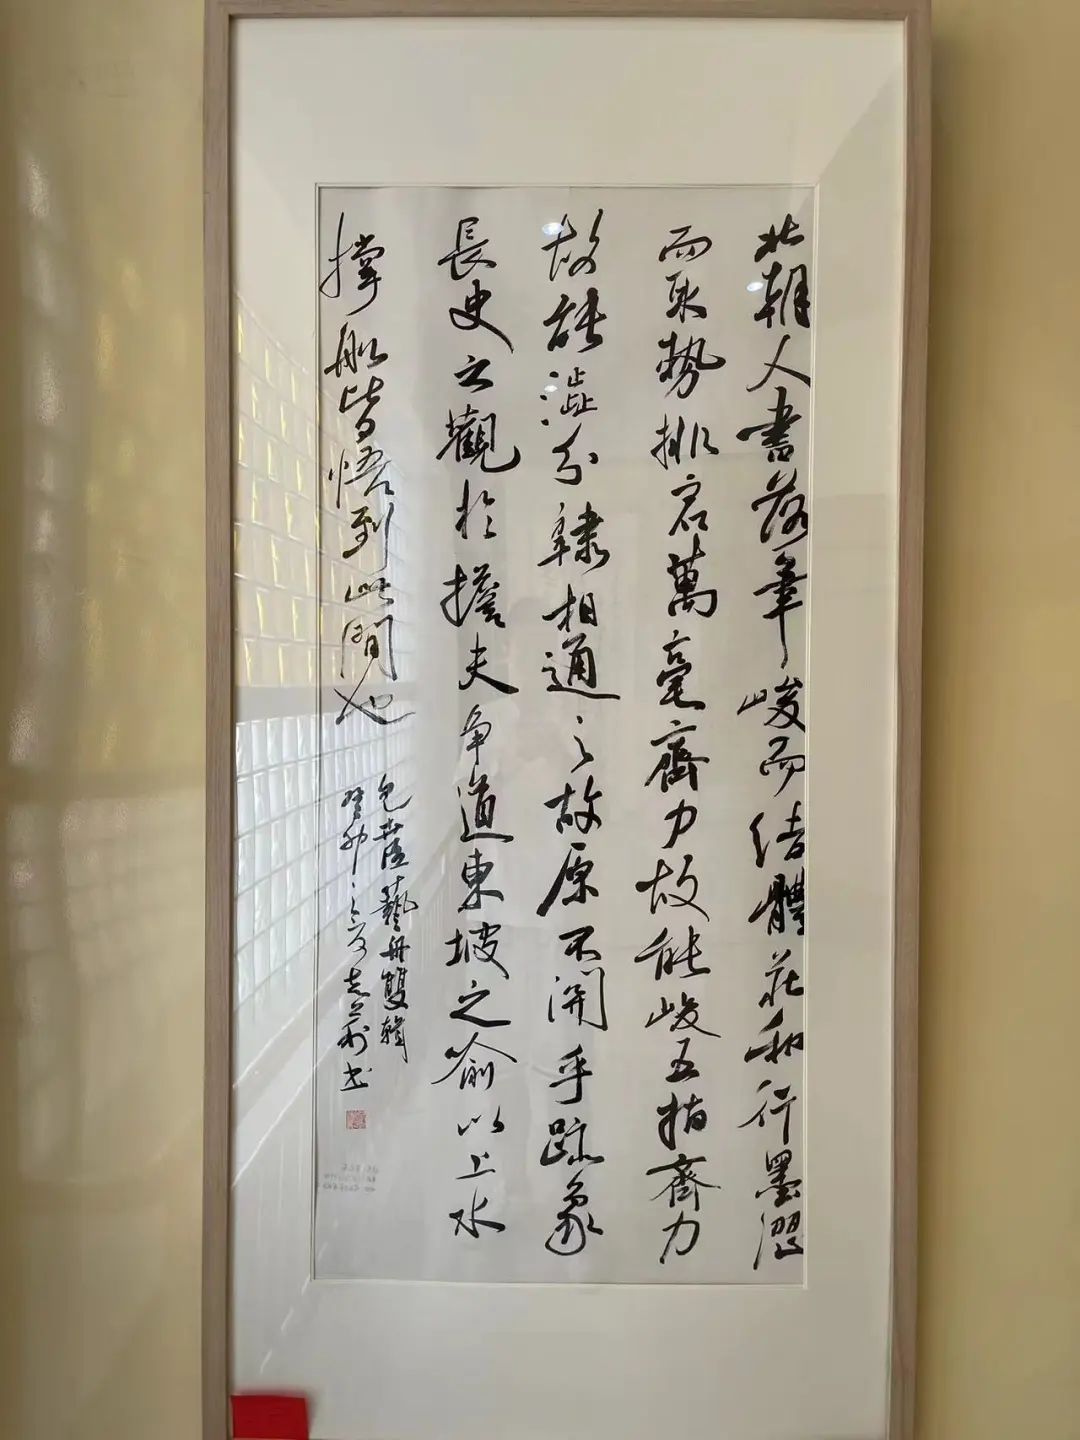 北朝人書落筆峻而結體莊和行墨澀
而取勢排宕萬毫齊力故能峻五指齊力
故能澀分隸相通之故原不關乎跡象
長史之觀於擔夫爭道東坡之喻以上水
撐船皆悟到此間也
包世臣藝舟雙輯
癸卯之夏志書